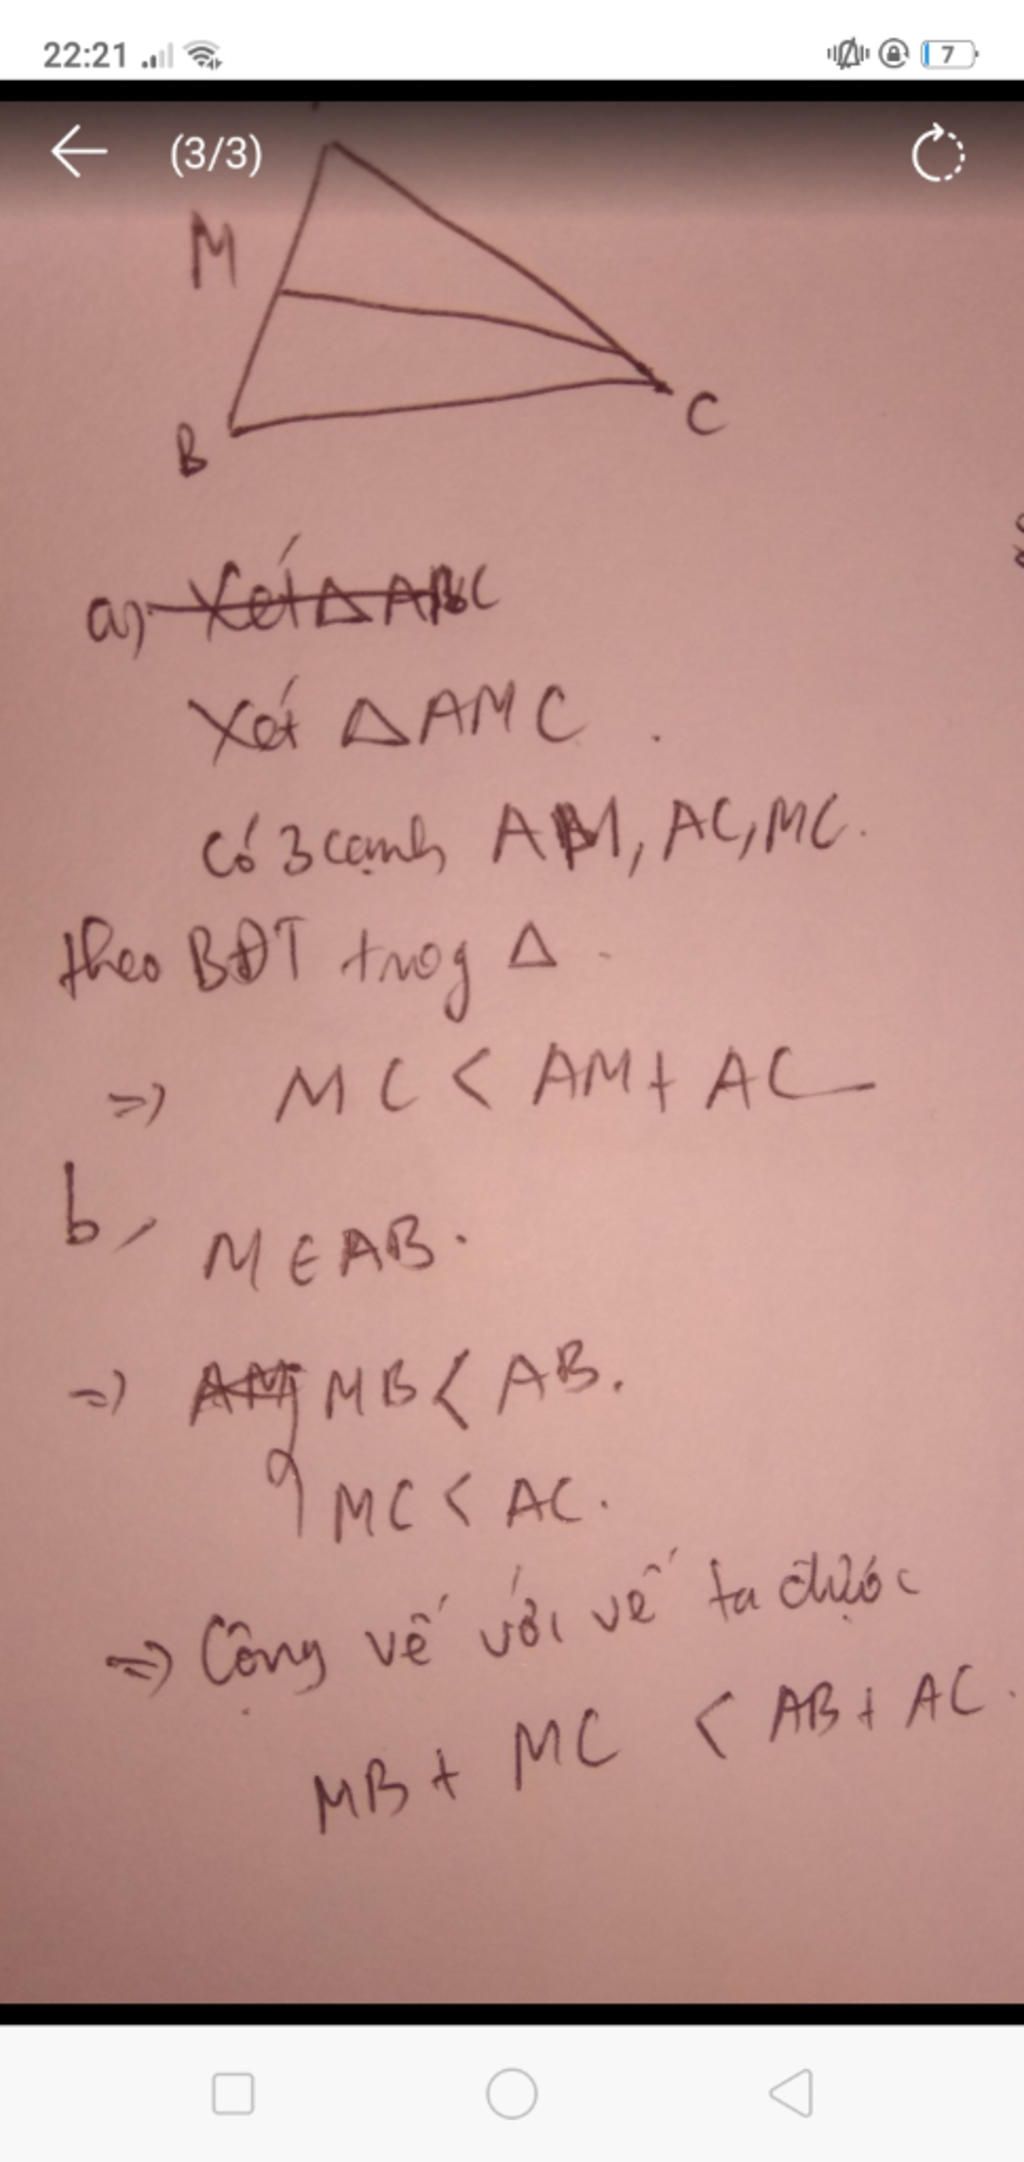 22:21
7
(3/3)
M
B
C
a) Xét Δ ABC
Xét Δ AMC .
Có 3 cạnh AM, AC, MC.
theo BĐT trog Δ .
=> MC < AM + AC
b, M ∈ AB.
=> AM MB < AB.
MC < AC.
=> Cộng vế với vế ta được
MB + MC < AB + AC.